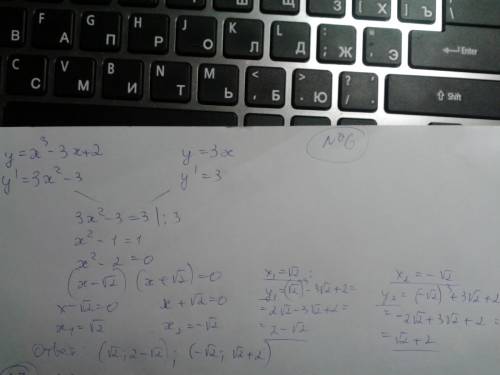 Ш Щ З Х { [ Ъ } ]
В F А П Р J О K Л L Д : ; Ж " ' Э Enter
С V М B И N Т M Ь < , Б > . Ю ? / Shift
№6
y=x³-3x+2 y=3x
y'=3x²-3 y'=3
3x²-3=3 |:3
x²-1=1
x²-2=0
(x-√2)(x+√2)=0
x-√2=0 x+√2=0
x₁=√2 x₂=-√2
x₁=√2;
y₁=(√2)³-3√2+2=
=2√2-3√2+2=
=2-√2
x₂=-√2
y₂=(-√2)³+3√2+2
=-2√2+3√2+2=
=√2+2
Ответ (√2; 2-√2); (-√2; √2+2)